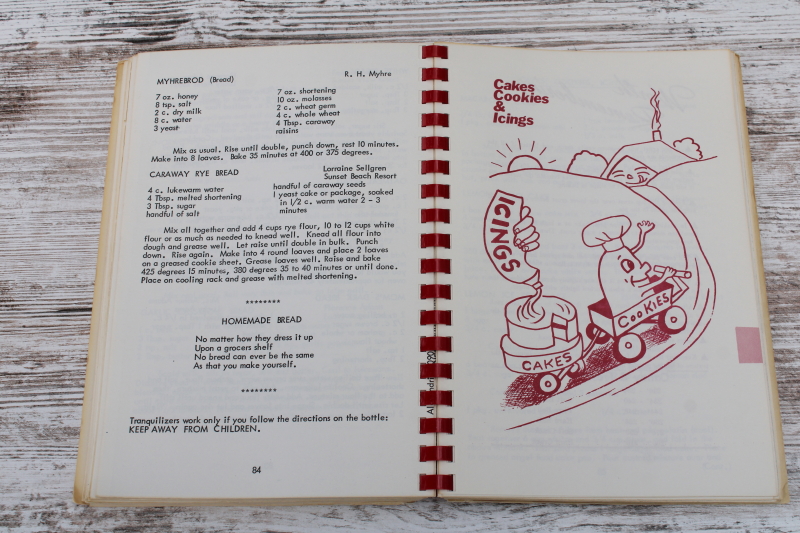 MYHREBROD (Bread) R. H. Myhre
7 oz. honey
8 tsp. salt
2 c. dry milk
8 c. water
3 yeast
7 oz. shortening
10 oz. molasses
2 c. wheat germ
4 c. whole wheat
4 Tbsp. caraway
raisins
Mix as usual. Rise until double, punch down, rest 10 minutes.
Make into 8 loaves. Bake 35 minutes at 400 or 375 degrees.
CARAWAY RYE BREAD Lorraine Sellgren
Sunset Beach Resort
4 c. lukewarm water
4 Tbsp. melted shortening
3 Tbsp. sugar
handful of salt
handful of caraway seeds
1 yeast cake or package, soaked
in 1/2 c. warm water 2 - 3
minutes
Mix all together and add 4 cups rye flour, 10 to 12 cups white
flour or as much as needed to knead well. Knead all flour into
dough and grease well. Let raise until double in bulk. Punch
down. Rise again. Make into 4 round loaves and place 2 loaves
on a greased cookie sheet. Grease loaves well. Raise and bake
425 degrees 15 minutes, 380 degrees 35 to 40 minutes or until done.
Place on cooling rack and grease with melted shortening.
********
HOMEMADE BREAD
No matter how they dress it up
Upon a grocers shelf
No bread can ever be the same
As that you make yourself.
********
Tranquilizers work only if you follow the directions on the bottle:
KEEP AWAY FROM CHILDREN.
84
Cakes
Cookies
&
Icings
ICINGS
COOKIES
CAKES